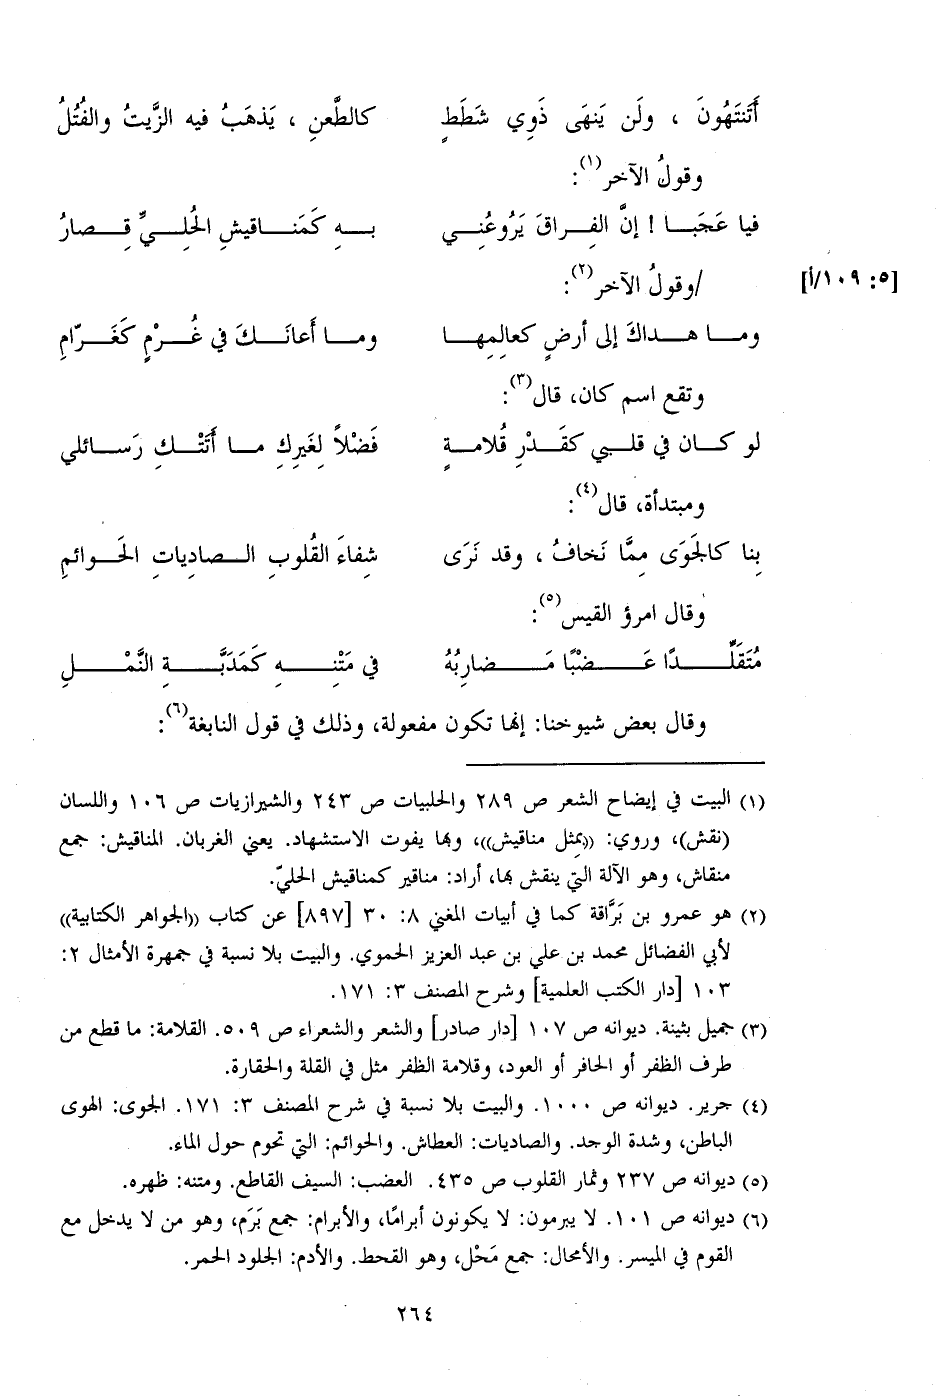 أَتَنتَهُونَ ، ولَن يَنهَى ذَوِي شَطَطٍ كالطَّعنِ ، يَذهَبُ فيه الزَّيتُ والفُتُلُ
وقولُ الآخر(١):
فيا عَجَبـا ! إنَّ الفِراقَ يَرُوعُنِي بـهِ كَمَناقيشِ الحُلِيِّ قِصارُ
[٥: ١٠٩/أ] /وقولُ الآخر(٢):
وما هداكَ إلى أرضٍ كعالِمِها وما أَعانَكَ في غُرْمٍ كَغَرَّامِ
وتقع اسم كان، قال(٣):
لو كان في قلبي كقَدْرِ قُلامةٍ فَضْلاً لِغَيرِكِ ما أَتَتْكِ رَسائلي
ومبتدأة، قال(٤):
بِنا كالجَوَى مِمَّا نَخافُ ، وقد نَرَى شفاءَ القُلوبِ الصادِياتِ الحَوائمِ
وقال امرؤ القيس(٥):
مُتَقَلِّدًا عَضْبًا مَضارِبُهُ في مَتْنِهِ كَمَدَبَّةِ النَّمْلِ
وقال بعض شيوخنا: إنها تكون مفعولة، وذلك في قول النابغة(٦):
(١) البيت في إيضاح الشعر ص ٢٨٩ والحلبيات ص ٢٤٣ والشيرازيات ص ١٠٦ واللسان
(نقش)، وروي: ((بمثل مناقيش))، وبها يفوت الاستشهاد. يعني الغربان. المناقيش: جمع
منقاش، وهو الآلة التي ينقش بها، أراد: مناقير كمناقيش الحليّ.
(٢) هو عمرو بن بَرَّاقة كما في أبيات المغني ٨: ٣٠ [٨٩٧] عن كتاب ((الجواهر الكتابية))
لأبي الفضائل محمد بن علي بن عبد العزيز الحموي. والبيت بلا نسبة في جمهرة الأمثال ٢:
١٠٣ [دار الكتب العلمية] وشرح المصنف ٣: ١٧١.
(٣) جميل بثينة. ديوانه ص ١٠٧ [دار صادر] والشعر والشعراء ص ٥٠٩. القلامة: ما قطع من
طرف الظفر أو الحافر أو العود، وقلامة الظفر مثل في القلة والحقارة.
(٤) جرير. ديوانه ص ١٠٠٠. والبيت بلا نسبة في شرح المصنف ٣: ١٧١. الجوى: الهوى
الباطن، وشدة الوجد. والصاديات: العطاش. والحوائم: التي تحوم حول الماء.
(٥) ديوانه ص ٢٣٧ وثمار القلوب ص ٤٣٥. العضب: السيف القاطع. ومتنه: ظهره.
(٦) ديوانه ص ١٠١. لا يبرمون: لا يكونون أبرامًا، والأبرام: جمع بَرَم، وهو من لا يدخل مع
القوم في الميسر. والأمحال: جمع مَحْل، وهو القحط. والأدم: الجلود الحمر.
٢٦٤